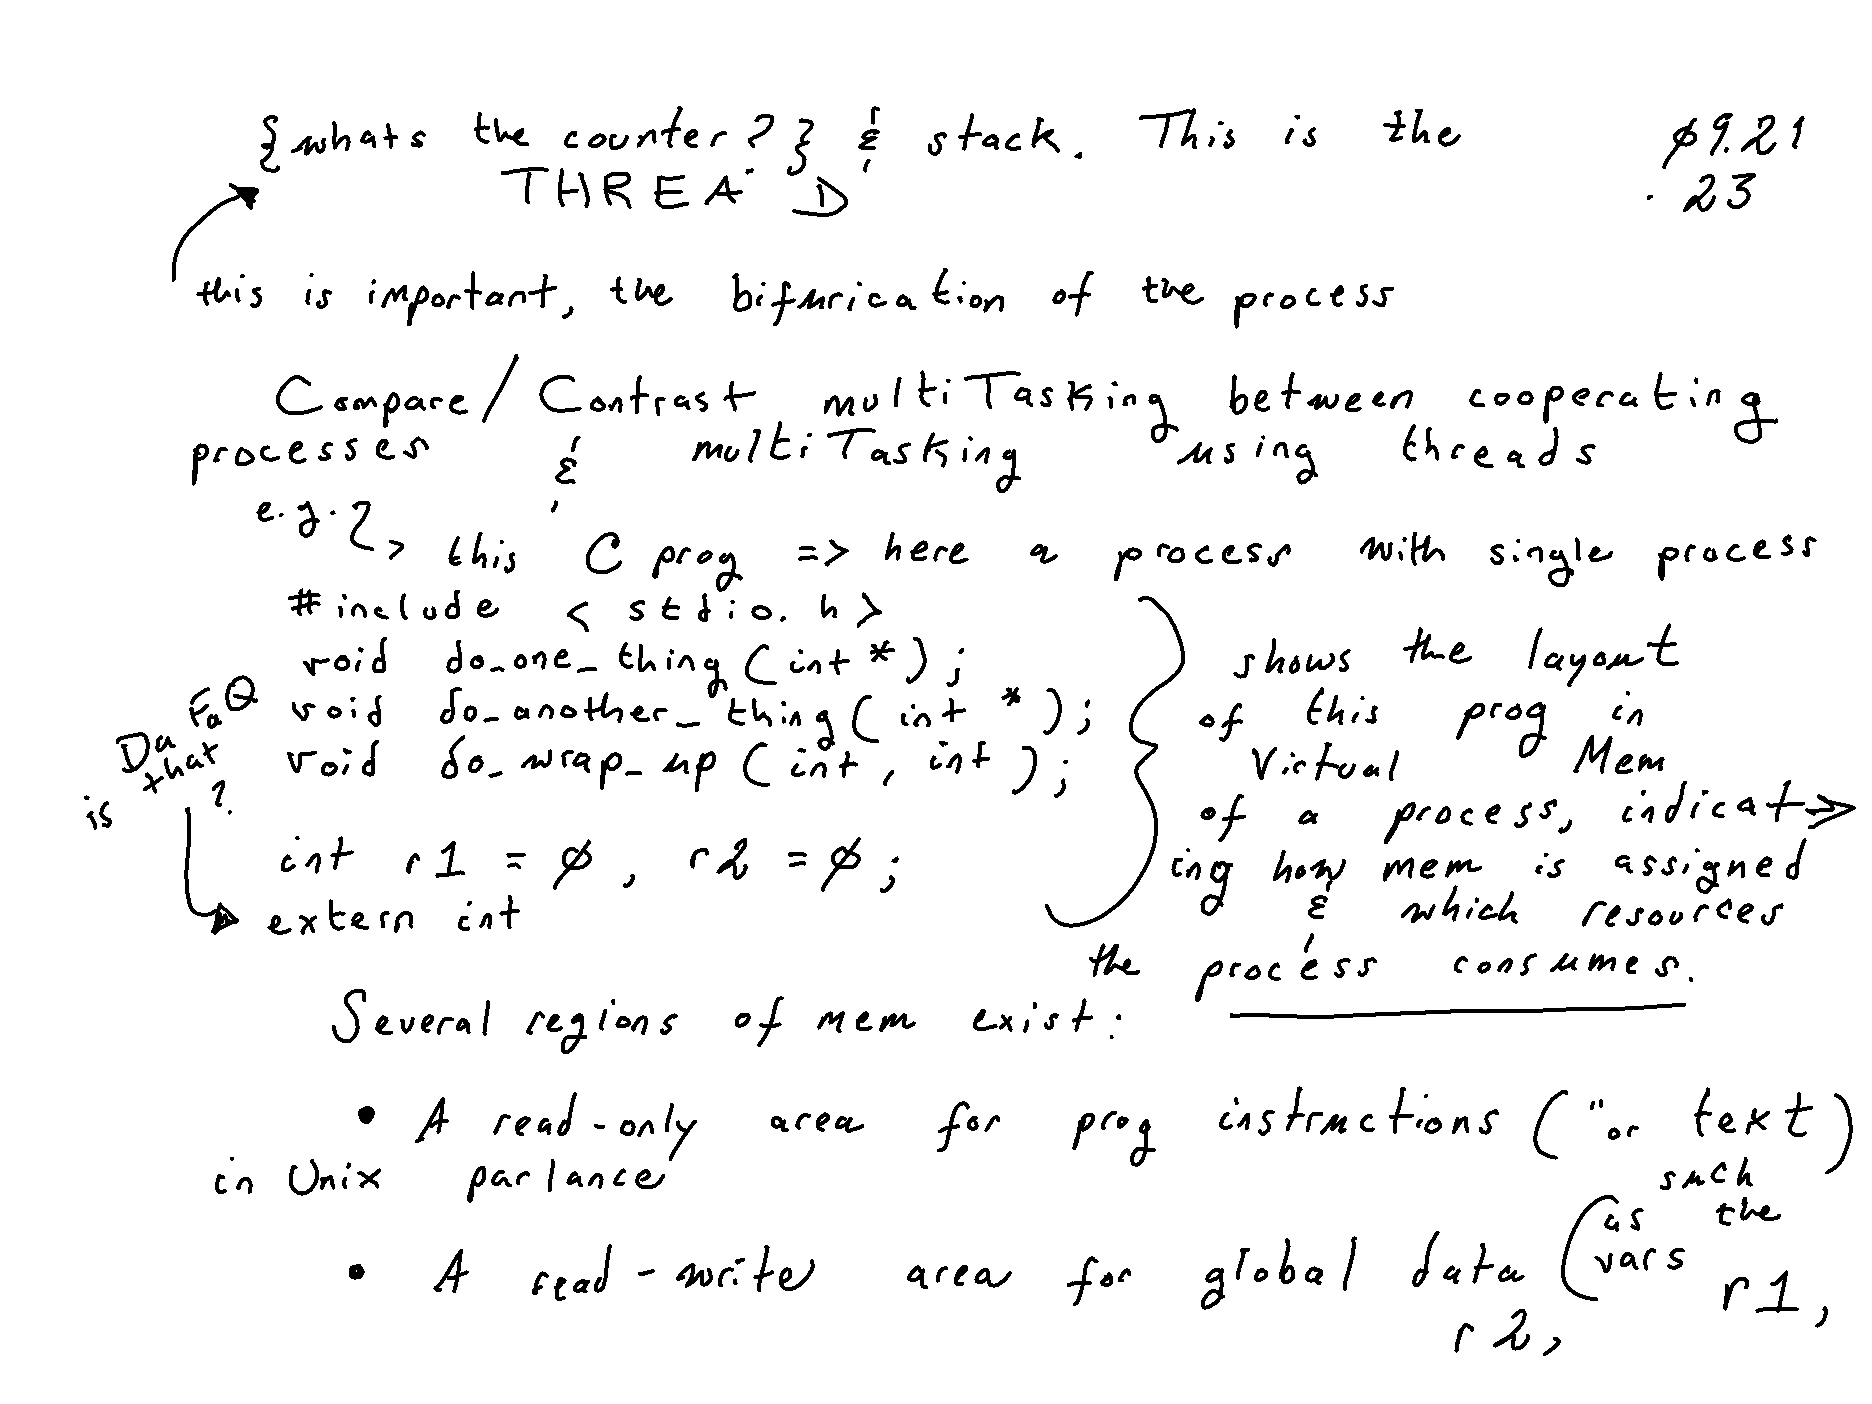 {whats the counter?} & stack. This is the
THREAD
ø9.21
.23
this is important, the bifurication of the process
Compare/Contrast multiTasking between cooperating
processes & multiTasking using threads
e.g. > this C prog => here a process with single process
#include < stdio.h>
void do_one_thing(int *);
void do_another_thing(int *);
void do_wrap_up (int, int);
Da FaQ
is that
?
int r1 = ø, r2 = ø;
extern int
shows the layout
of this prog in
Virtual Mem
of a process, indicat→
ing how mem is assigned
& which resources
the process consumes.
Several regions of mem exist:
• A read-only area for prog instructions ("or text)
in Unix parlance
• A read-write area for global data (such
as the
vars r1,
r2,